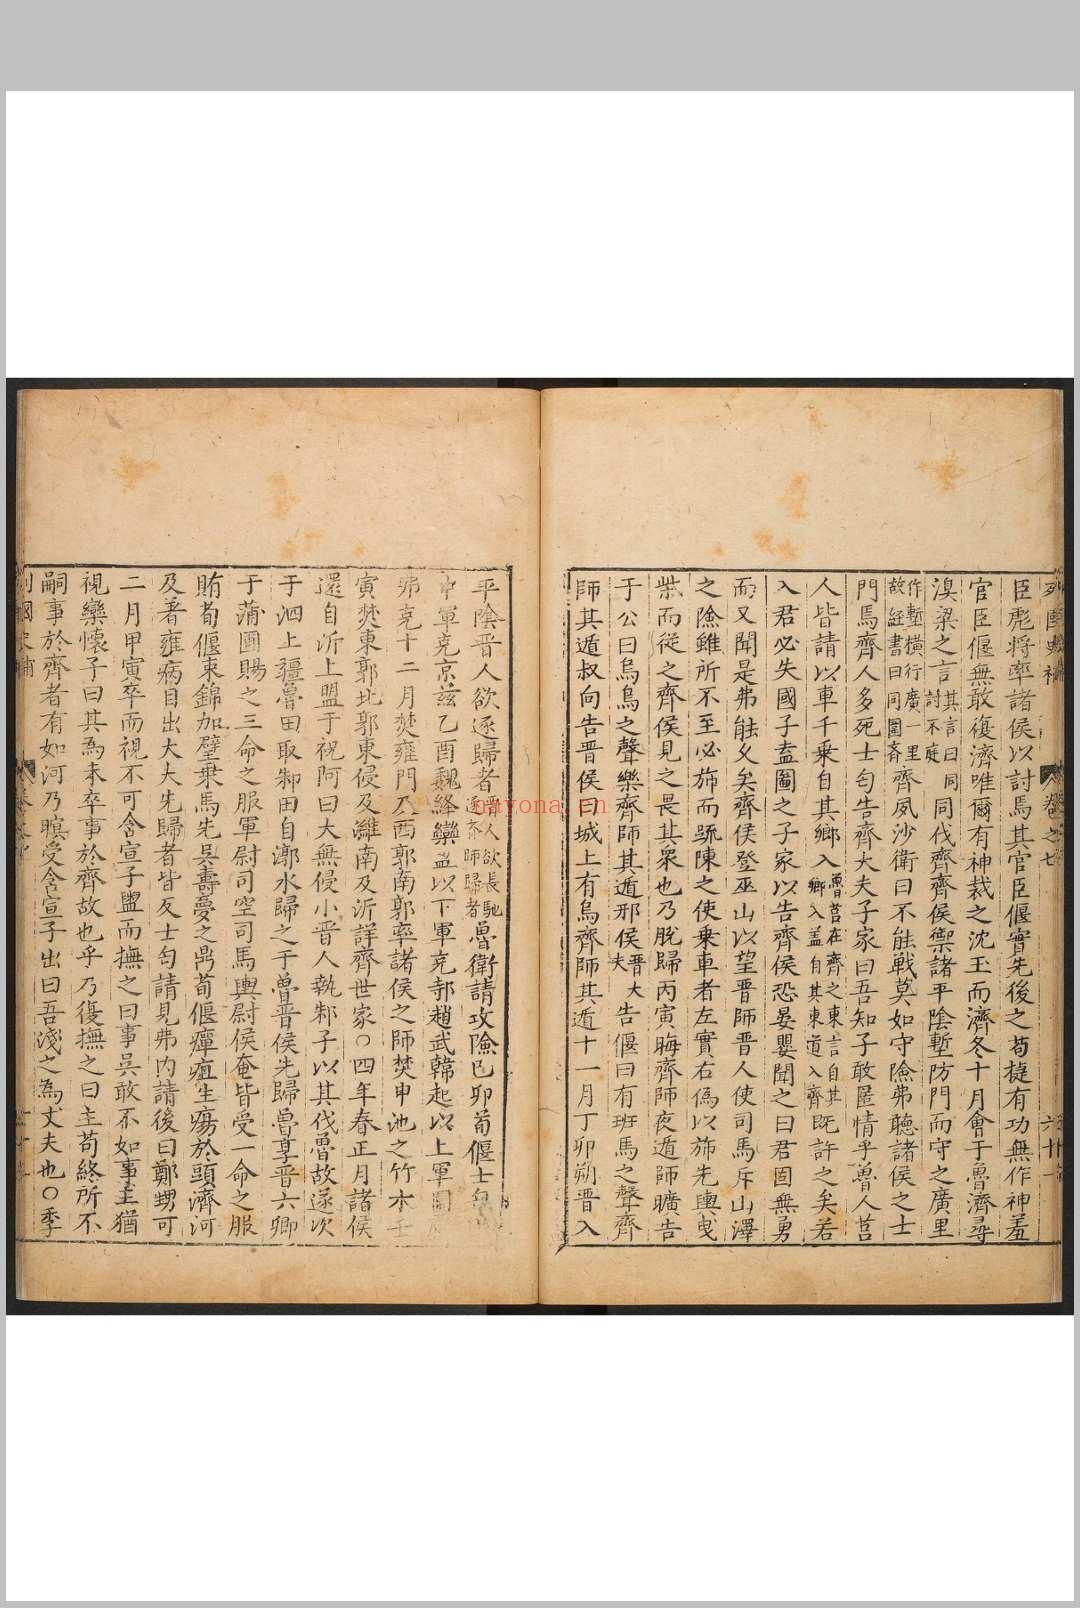 列國史補
卷之七
六十一
臣彪將率諸侯以討焉其官臣偃實先後之苟捷有功無作神羞
官臣偃無敢復濟唯爾有神裁之沈玉而濟冬十月會于魯濟尋
溴梁之言其言曰同討不庭同伐齊齊侯禦諸平陰塹防門而守之廣里
作塹橫行廣一里故經書曰同圍齊齊夙沙衛曰不能戰莫如守險弗聽諸侯之士
門焉齊人多死士匄告齊大夫子家曰吾知子敢匿情乎魯人莒
人皆請以車千乘自其鄉入魯莒在齊之東言自其鄉入蓋自其東道入齊既許之矣若
入君必失國子盍圖之子家以告齊侯恐晏嬰聞之曰君固無勇
而又聞是弗能久矣齊侯登巫山以望晉師晉人使司馬斥山澤
之險雖所不至必斾而疏陳之使乘車者左實右偽以斾先輿曳
柴而從之齊侯見之畏其衆也乃脫歸丙寅晦齊師夜遁師曠告
于公曰烏烏之聲樂齊師其遁邢侯晉大夫告偃曰有班馬之聲齊
師其遁叔向告晉侯曰城上有烏齊師其遁十一月丁卯朔晉入
平陰晉人欲逐歸者晉人欲長馳逐齊師歸者魯衛請攻險己卯荀偃士匄
中軍克京茲乙酉魏絳欒盈以下軍克邿趙武韓起以上軍圍
弗克十二月焚雍門及西郭南郭率諸侯之師焚申池之竹木壬
寅焚東郭北郭東侵及濰南及沂詳齊世家○四年春正月諸侯
還自沂上盟于祝阿曰大無侵小晉人執邾子以其伐魯故遂次
于泗上疆魯田取邾田自漷水歸之于魯晉侯先歸魯享晉六卿
于蒲圃賜之三命之服軍尉司空司馬輿尉侯奄皆受一命之服
賄荀偃束錦加璧乘馬先吳壽夢之鼎荀偃癉疽生瘍於頭濟河
及著雍病目出大夫先歸者皆反士匄請見弗內請後曰鄭甥可
二月甲寅卒而視不可含宣子盥而撫之曰事吳敢不如事主猶
視欒懷子曰其為未卒事於齊故也乎乃復撫之曰主苟終所不
嗣事於齊者有如河乃暝受含宣子出曰吾淺之為丈夫也○季
列國史補
nayona.cn